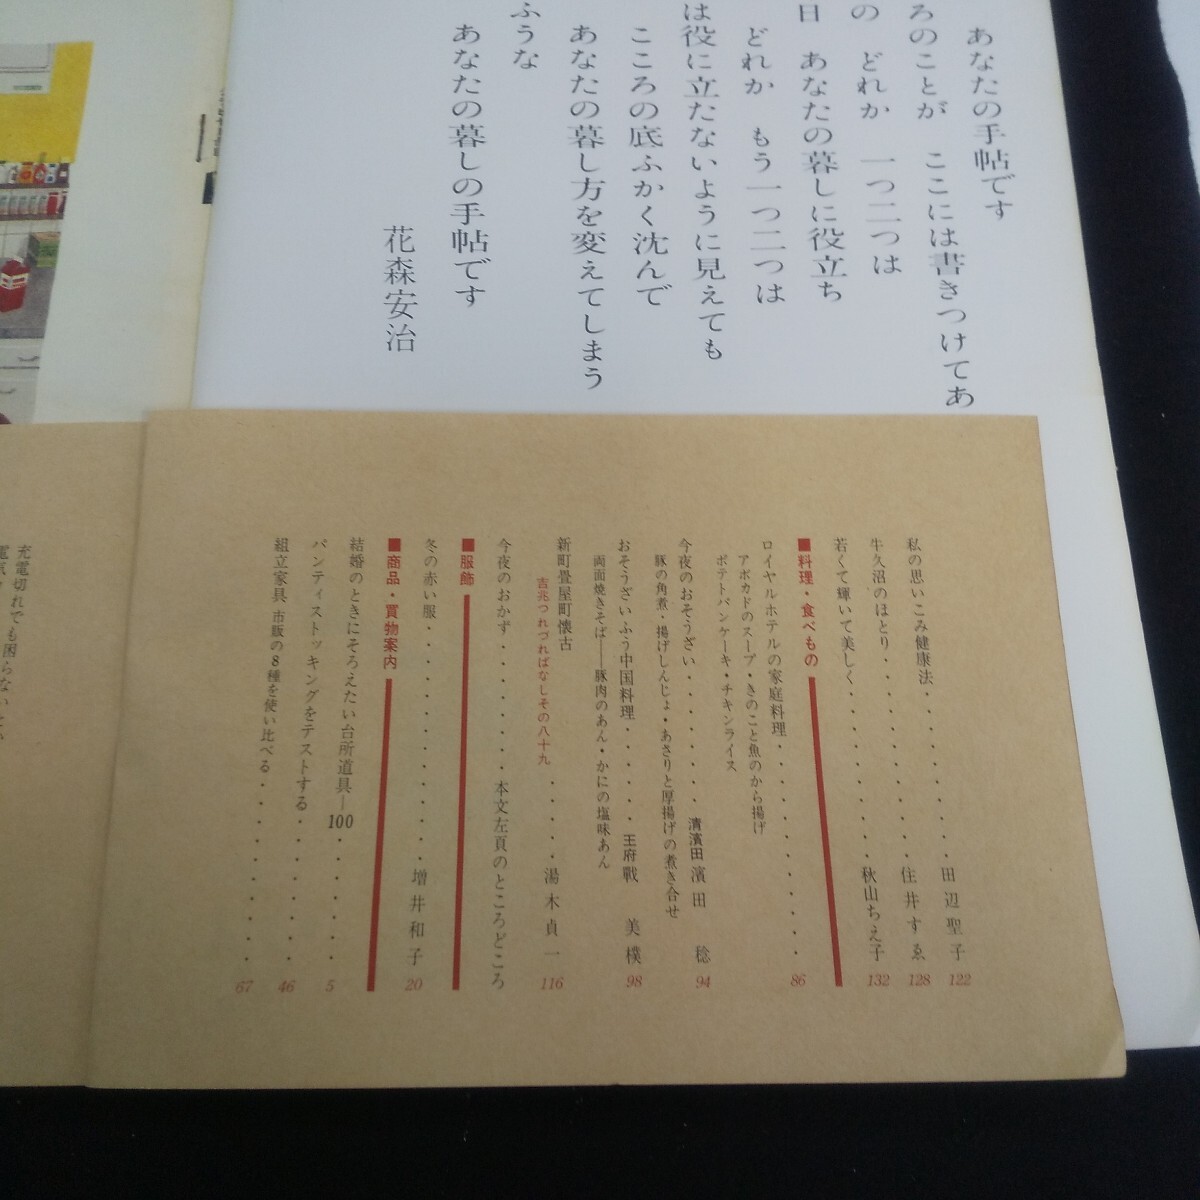 あなたの手帖です
ろのことが　ここには書きつけてあ
の　どれか　一つ二つは
日　あなたの暮しに役立ち
どれか　もう一つ二つは
は役に立たないように見えても
こころの底ふかく沈んで
あなたの暮し方を変えてしまう
ふうな
あなたの暮しの手帖です
花森安治
私の思いこみ健康法・・・・・・・・・田辺聖子 122
牛久沼のほとり・・・・・・・・・・住井すゑ 128
若くて輝いて美しく・・・・・・・・秋山ちえ子 132
■料理・食べもの
ロイヤルホテルの家庭料理・・・・・・・・・・ 86
アボカドのスープ・きのこと魚のから揚げ
ポテトパンケーキ・チキンライス
今夜のおそうざい・・・・・・・清濱田 濱田　稔 94
豚の角煮・揚げしんじょ・あさりと厚揚げの煮き合せ
おそうざいふう中国料理・・・・・王府 戰　美樸 98
両面焼きそば——豚肉のあん・かにの塩味あん
新町畳屋町懐古
吉兆つれづればなしその八十九・・・・・湯木貞一 116
今夜のおかず・・・・・・・本文左頁のところどころ
■服飾
冬の赤い服・・・・・・・・・・・・増井和子 20
■商品・買物案内
結婚のときにそろえたい台所道具—100・・・・・・ 5
パンティストッキングをテストする・・・・・・・ 46
組立家具 市販の8種を使い比べる・・・・・・・・ 67
充電切れでも困らない